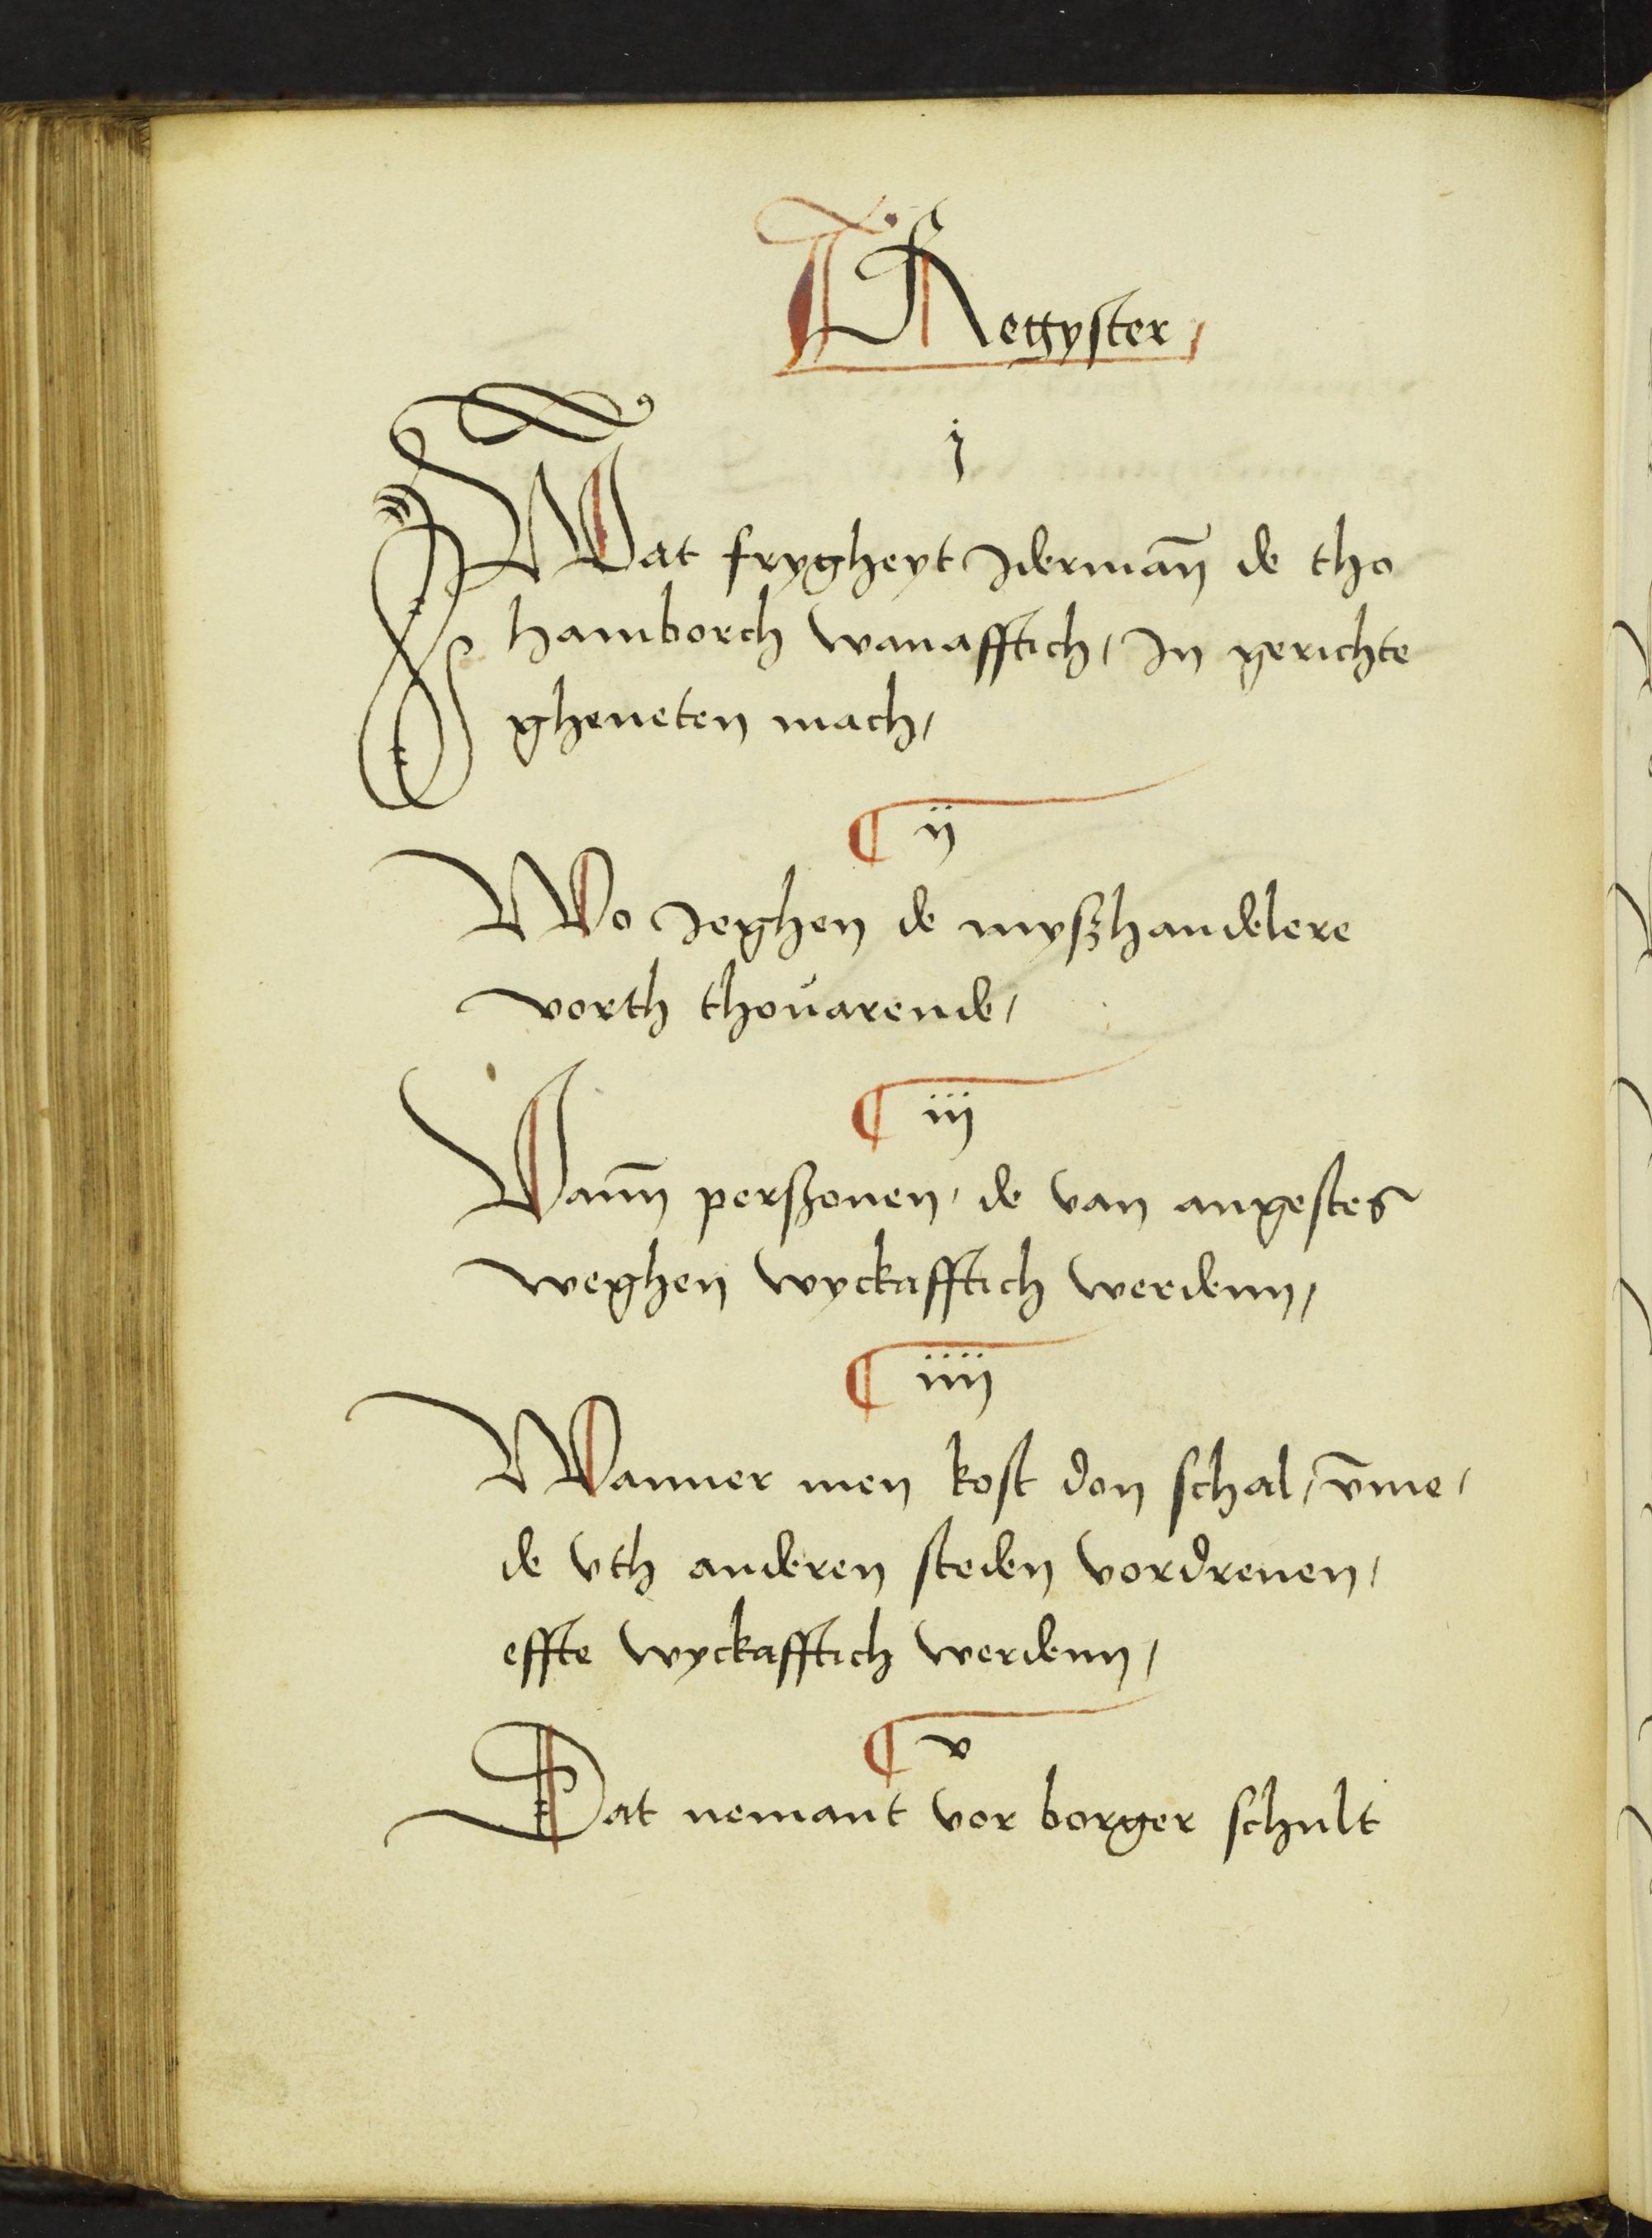 ¶ Regyster /
j
Wat frygheyt Idermañ de tho
hamborch wanafftich / In gerichte
gheneten mach /
¶ ij
Wo Jeghen de myszhandelere
vorth thouarende /
¶ iij
Vann perszonen / de van angestes
weghen wyckafftich werdenn /
¶ iiij
Wanner men kost don schal / v̄me /
de vth anderen steden vordreuen /
effte wyckafftich werdenn /
¶ v
Dat nemant vor borger schult